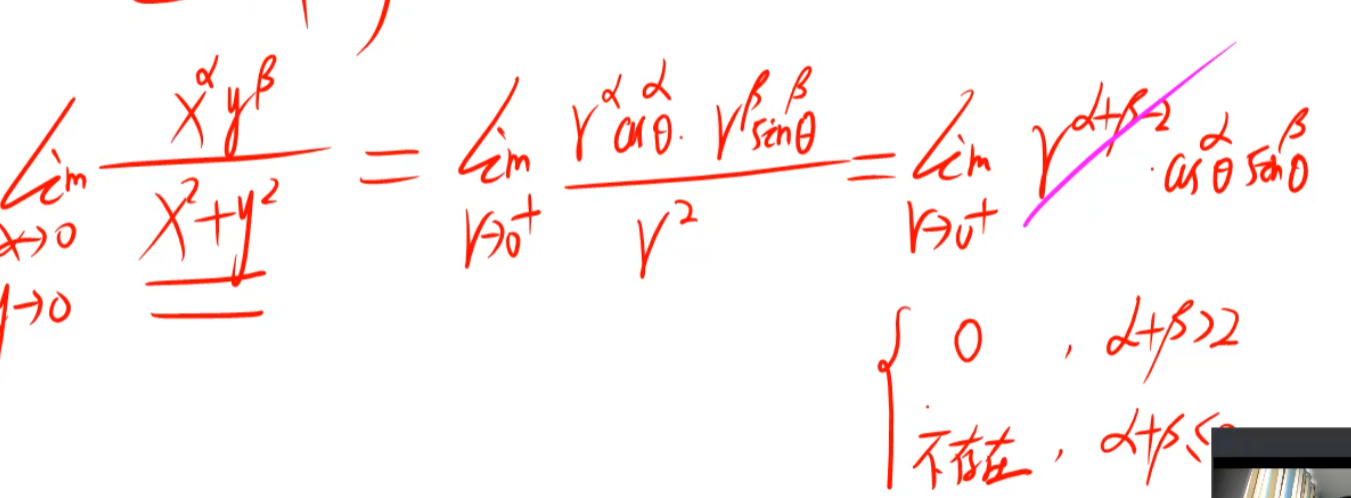 lim x→0 y→0 x^α y^β / (x²+y²) = lim r→0⁺ r^α cos^αθ · r^β sin^βθ / r² = lim r→0⁺ r^(α+β-2) · cos^αθ sin^βθ
{ 0 , α+β>2
不存在 , α+β≤